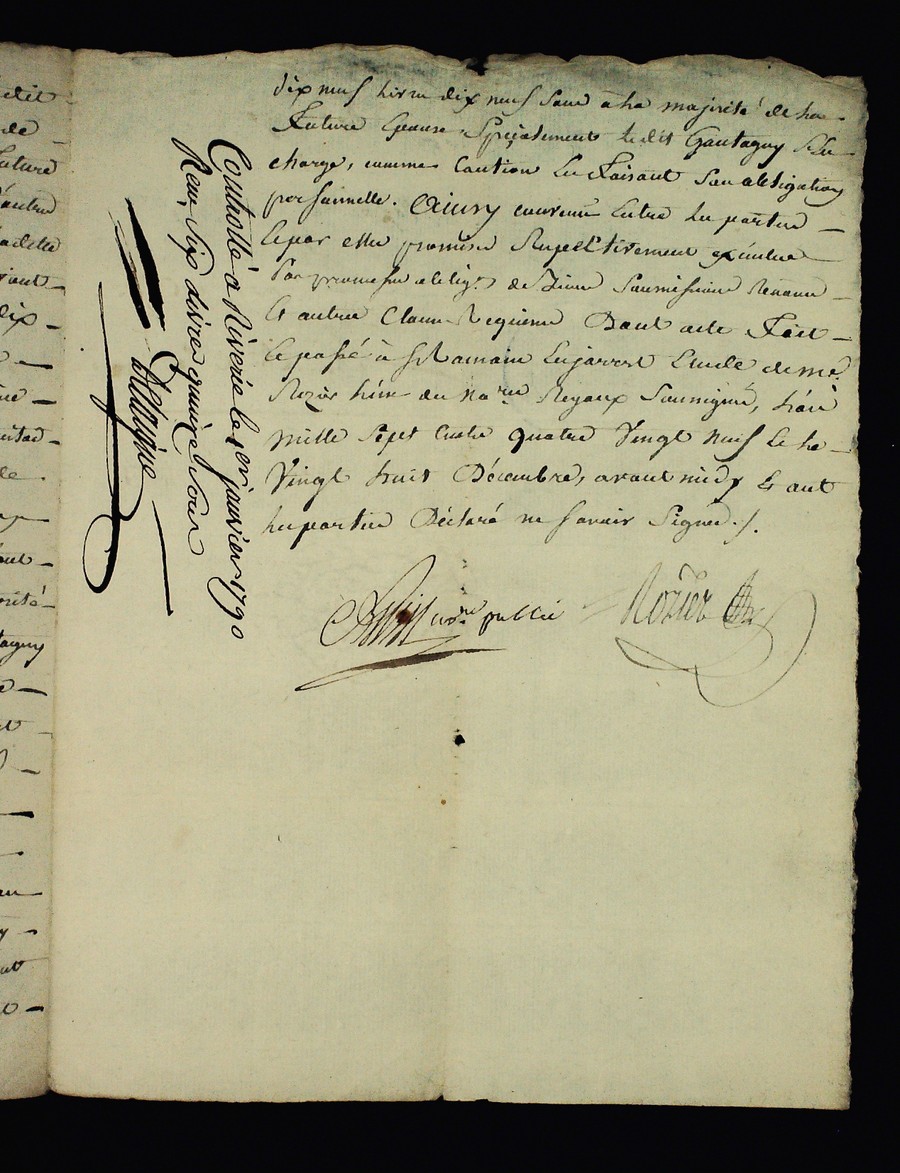 dix neuf livre dix neuf sous à la majorité de la
Future Epouse, Spécialement ledit Gantagny S'en
charge, comme Caution En Faisant Son obligation
personnelle. Ainsy convenu Entre les parties
Et par elles promis Respectivement exécuter
Par promesse oblig.on de Biens Soumission Renonc
Et autres Clauses Requises Dont acte Fait
Et passé à St Romain En Jarest Etude de Me.
Rozier L'un des No.res Royaux Soussignés, L'an
Mille Sept Cents Quatre Vingt neuf Et le
Vingt huit Décembre, avant midy Et ont
les parties Déclaré ne Savoir Signer ./.
no.re public
Rozier
Controllé à Riverie le 1er janvier 1790
Reçu Six livres quinze Sous
edit
de
future
autre
dix
gagny